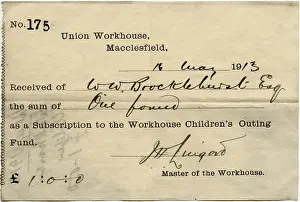 No. 175
Union Workhouse,
Macclesfield,
16 May 1913
Received of W. W. Brocklehurst Esq
the sum of One pound
as a Subscription to the Workhouse Children's Outing
Fund.
£ 1 : 0 : 0
Master of the Workhouse.